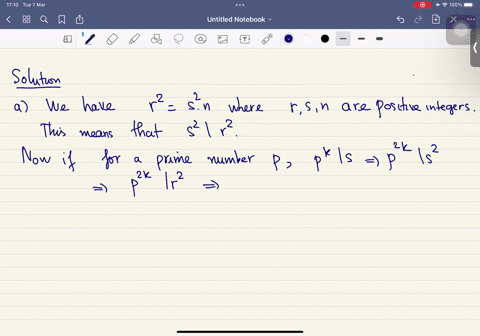 17:10 Tue 7 Mar
Untitled Notebook
Solution
a) We have r² = s².n where r,s,n are positive integers.
This means that s² \ r².
Now if for a prime number p, p^k \s ⇒ p^2k \s²
⇒ p^2k \r² ⇒